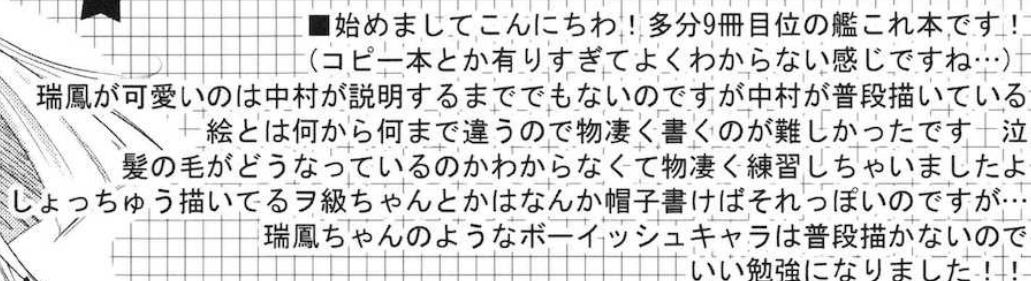 ■始めましてこんにちわ！多分9冊目位の艦これ本です！
（コピー本とか有りすぎてよくわからない感じですね…）
瑞鳳が可愛いのは中村が説明するまででもないのですが中村が普段描いている
絵とは何から何まで違うので物凄く書くのが難しかったです　泣
髪の毛がどうなっているのかわからなくて物凄く練習しちゃいましたよ
しょっちゅう描いてるヲ級ちゃんとかはなんか帽子書けばそれっぽいのですが…
瑞鳳ちゃんのようなボーイッシュキャラは普段描かないので
いい勉強になりました！！